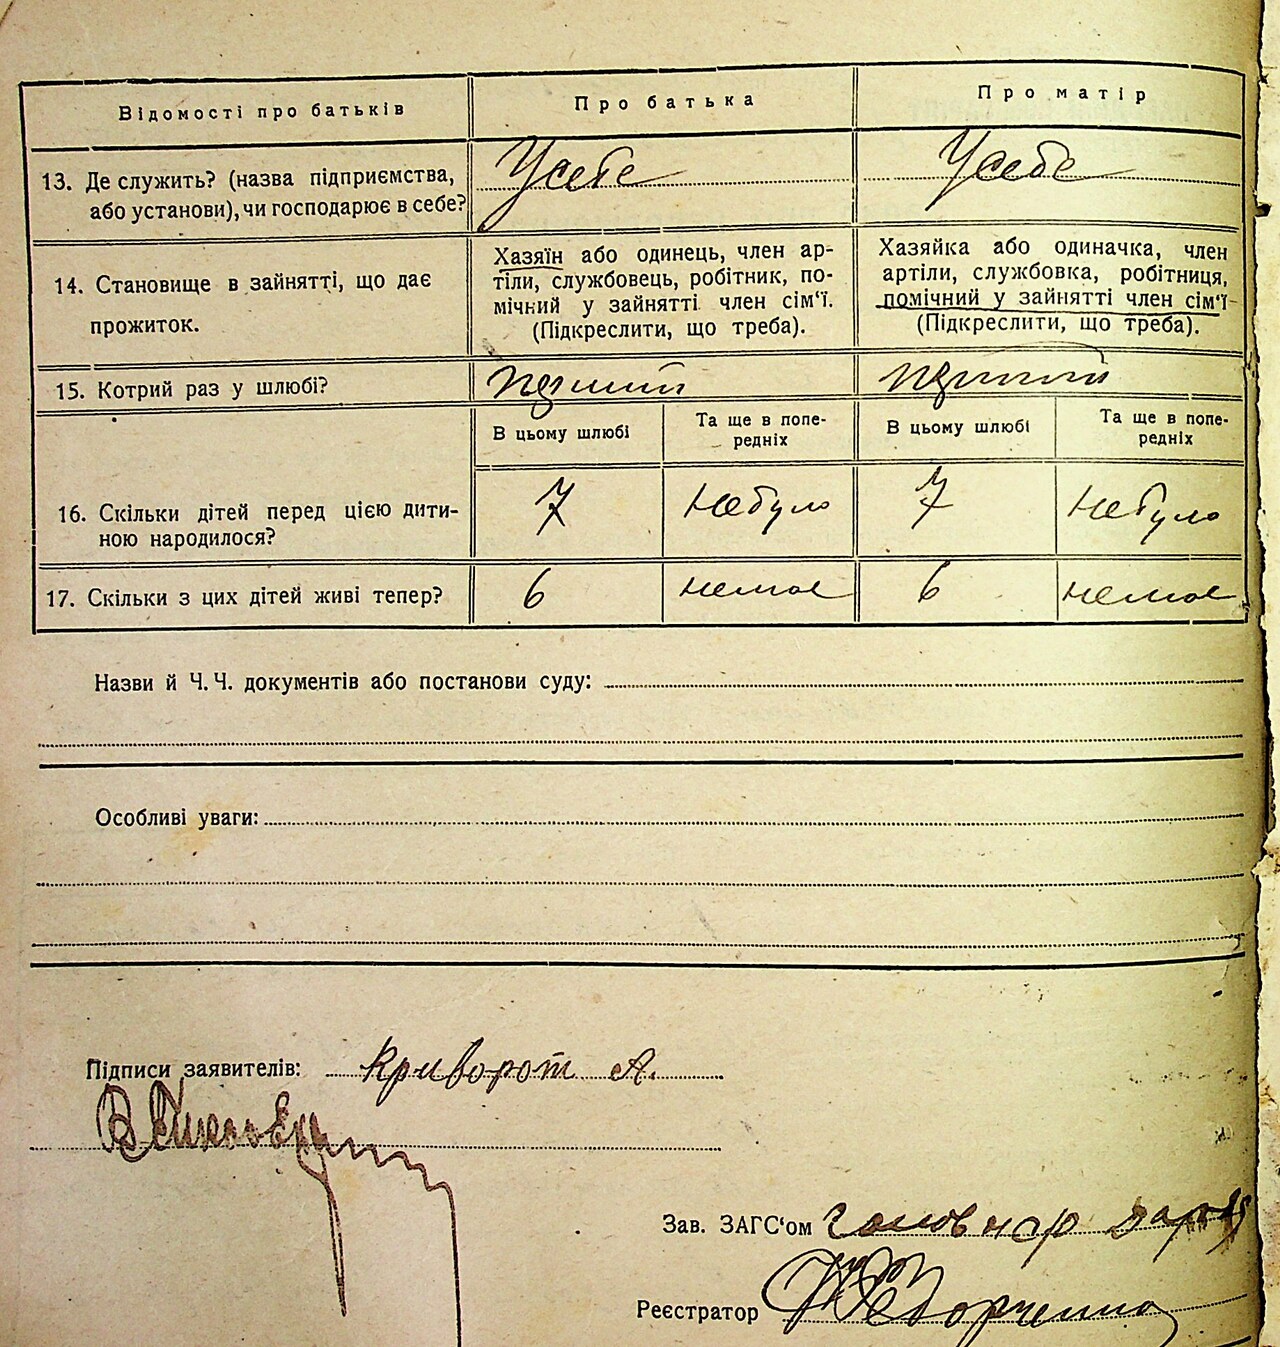 Відомості про батьків
Про батька
Про матір
13. Де служить? (назва підприємства,
або установи), чи господарює в себе?
У себе
У себе
14. Становище в зайнятті, що дає
прожиток.
Хазяїн або одинець, член ар-
тіли, службовець, робітник, по-
мічний у зайнятті член сім‘ї.
(Підкреслити, що треба).
Хазяйка або одиначка, член
артіли, службовка, робітниця,
помічний у зайнятті член сім‘ї
(Підкреслити, що треба).
15. Котрий раз у шлюбі?
перший
перший
В цьому шлюбі
Та ще в попе-
редніх
В цьому шлюбі
Та ще в попе-
редніх
16. Скільки дітей перед цією дити-
ною народилося?
7
не було
7
не було
17. Скільки з цих дітей живі тепер?
6
немає
6
немає
Назви й Ч. Ч. документів або постанови суду:
Особливі уваги:
Підписи заявителів: Криворот А.
Зав. ЗАГС‘ом
Реєстратор Федорченко